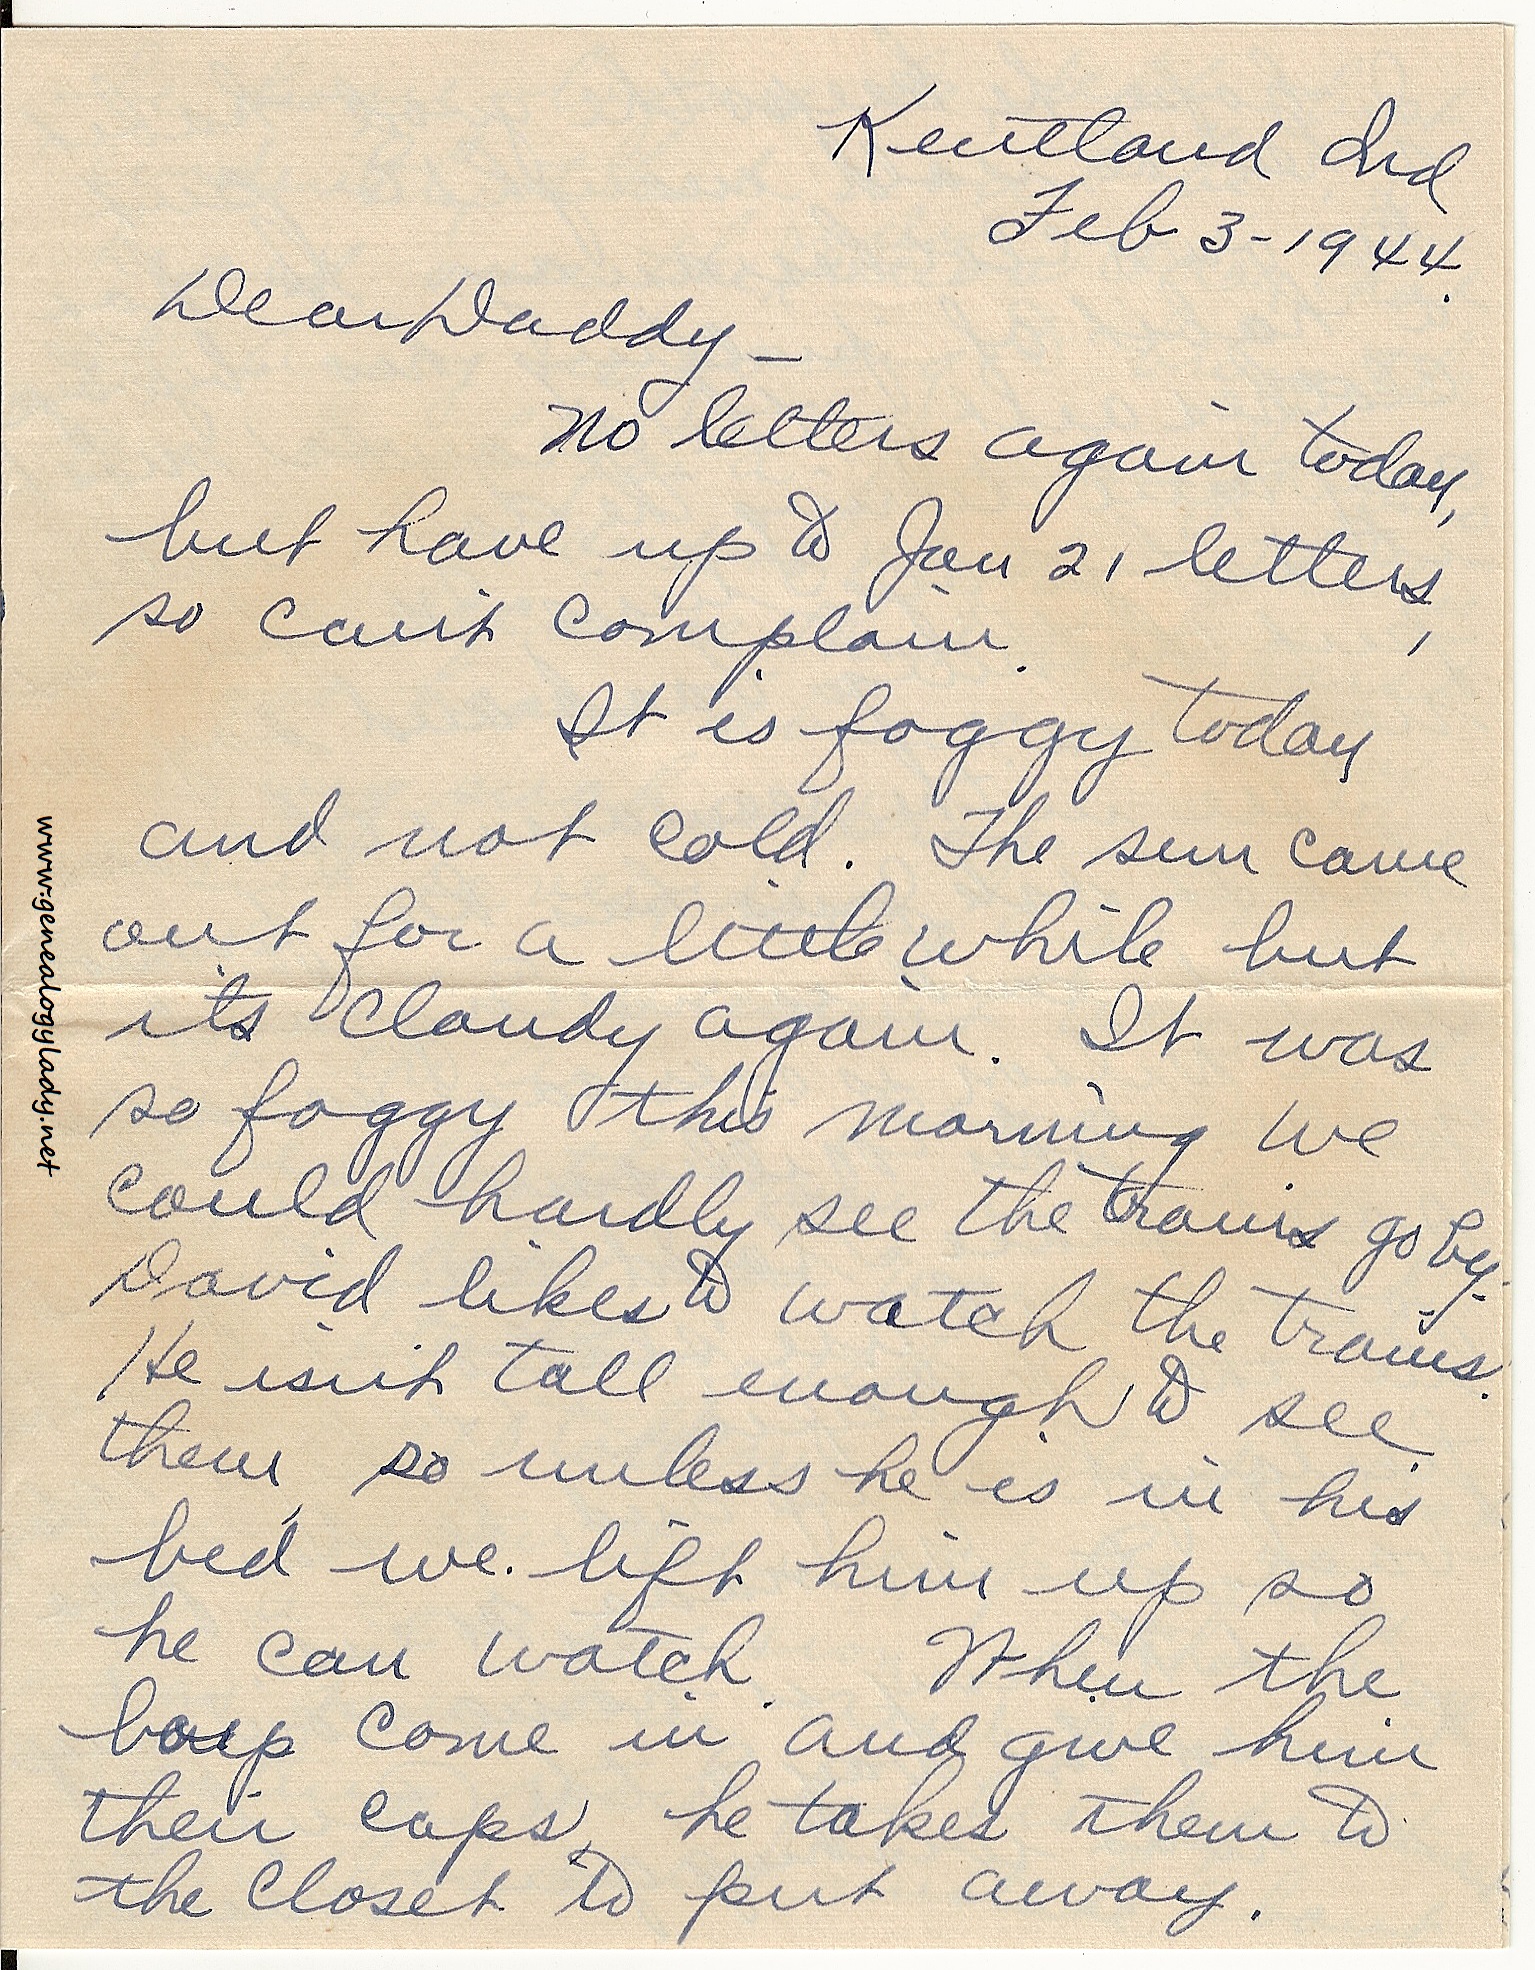 Kentland Ind
Feb 3-1944.
Dear Daddy –
No letters again today,
but have up to Jan 21 letters,
so can't complain.
It is foggy today
and not cold. The sun came
out for a little while but
its cloudy again. It was
so foggy this morning we
could hardly see the trains go by.
David likes to watch the trains.
He isn't tall enough to see
them, so unless he is in his
bed we lift him up so
he can watch. When the
boys come in and give him
their caps, he takes them to
the closet to put away.
www.genealogylady.net